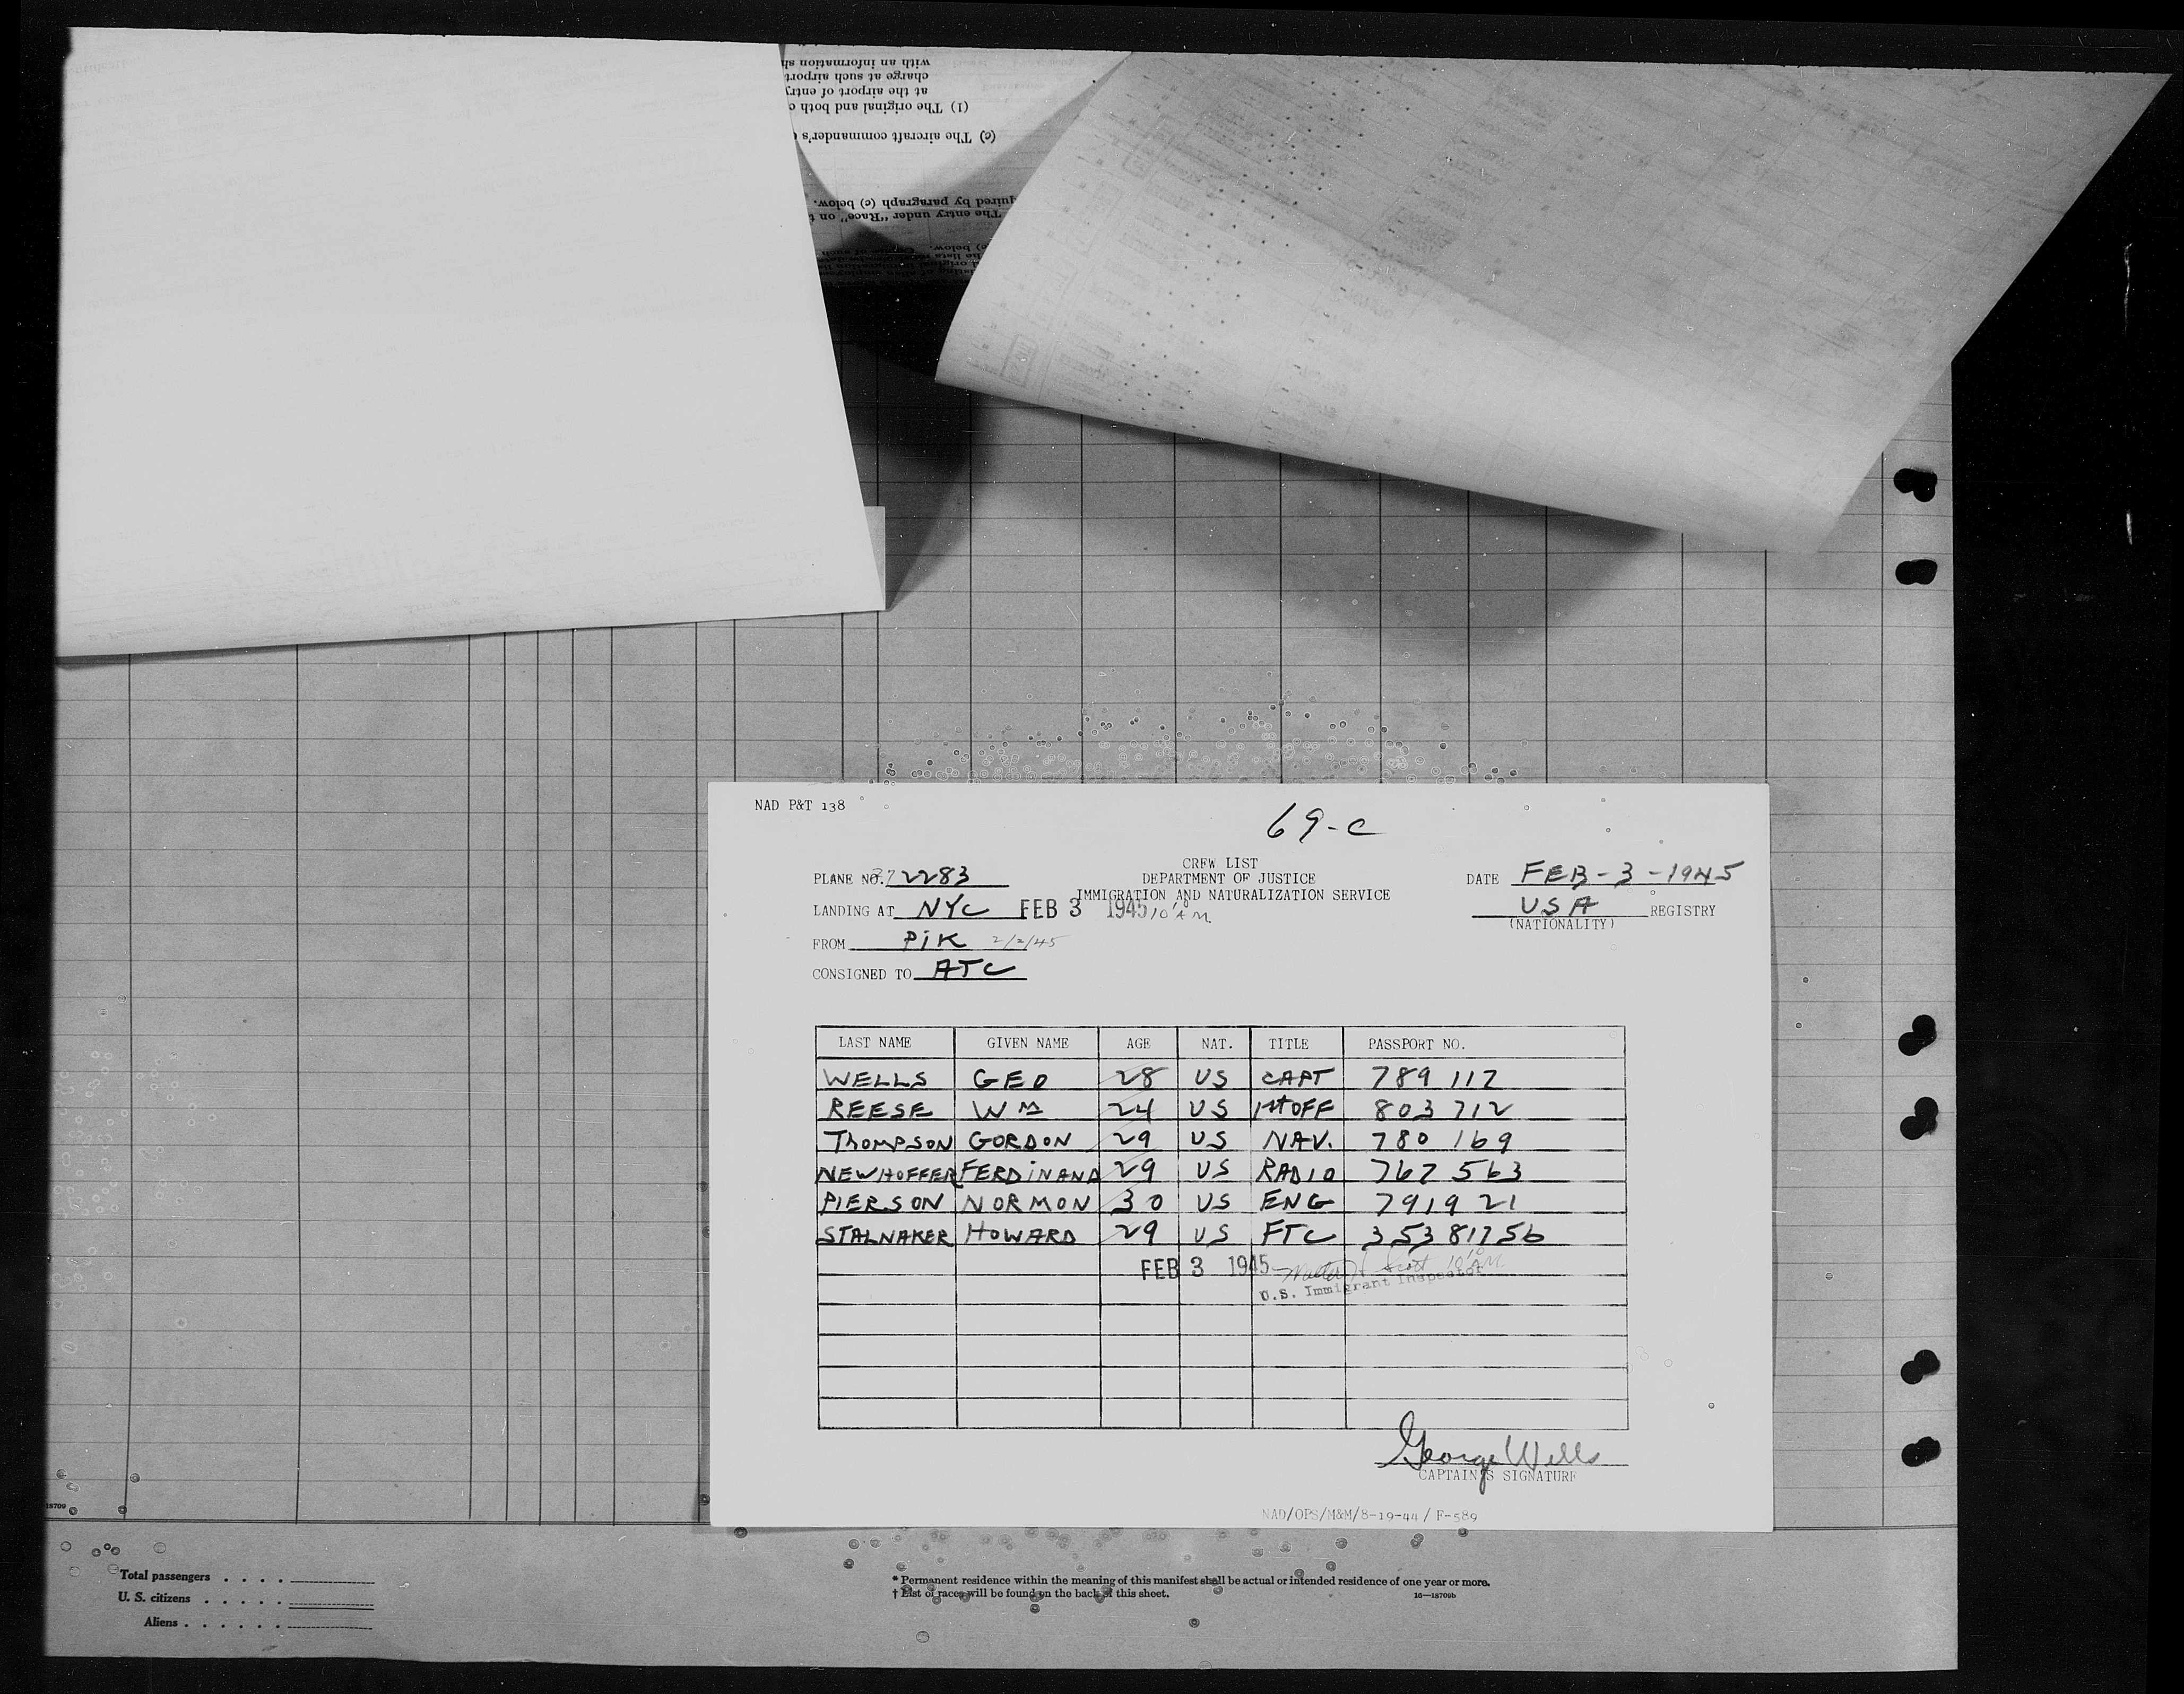 with an information
charge at such airport
at the airport of entry
(1) The original and both
(c) The aircraft commander's
quired by paragraph (c) below.
The entry under "Race" on
NAD P&T 138
69-C
CREW LIST
DEPARTMENT OF JUSTICE
IMMIGRATION AND NATURALIZATION SERVICE
PLANE NO. 72283
DATE FEB-3-1945
LANDING AT NYC FEB 3 1945 10 AM
USA REGISTRY
(NATIONALITY)
FROM PIK 2/2/45
CONSIGNED TO ATC
LAST NAME GIVEN NAME AGE NAT. TITLE PASSPORT NO.
WELLS GEO 28 US CAPT 789 117
REESE WM 24 US 1st OFF 803 712
THOMPSON GORDON 29 US NAV. 780 169
NEWHOFFER FERDINAND 29 US RADIO 767 563
PIERSON NORMON 30 US ENG 791921
STALNAKER HOWARD 29 US FTC 35381756
FEB 3 1945 Scott 10 AM
U.S. Immigrant Inspector
George Wells
CAPTAIN'S SIGNATURE
NAD/OPS/M&M/8-19-44/ F-589
18709
Total passengers . . . .
U. S. citizens . . . . .
Aliens . . . . . .
* Permanent residence within the meaning of this manifest shall be actual or intended residence of one year or more.
† List of races will be found on the back of this sheet.
16—18709b